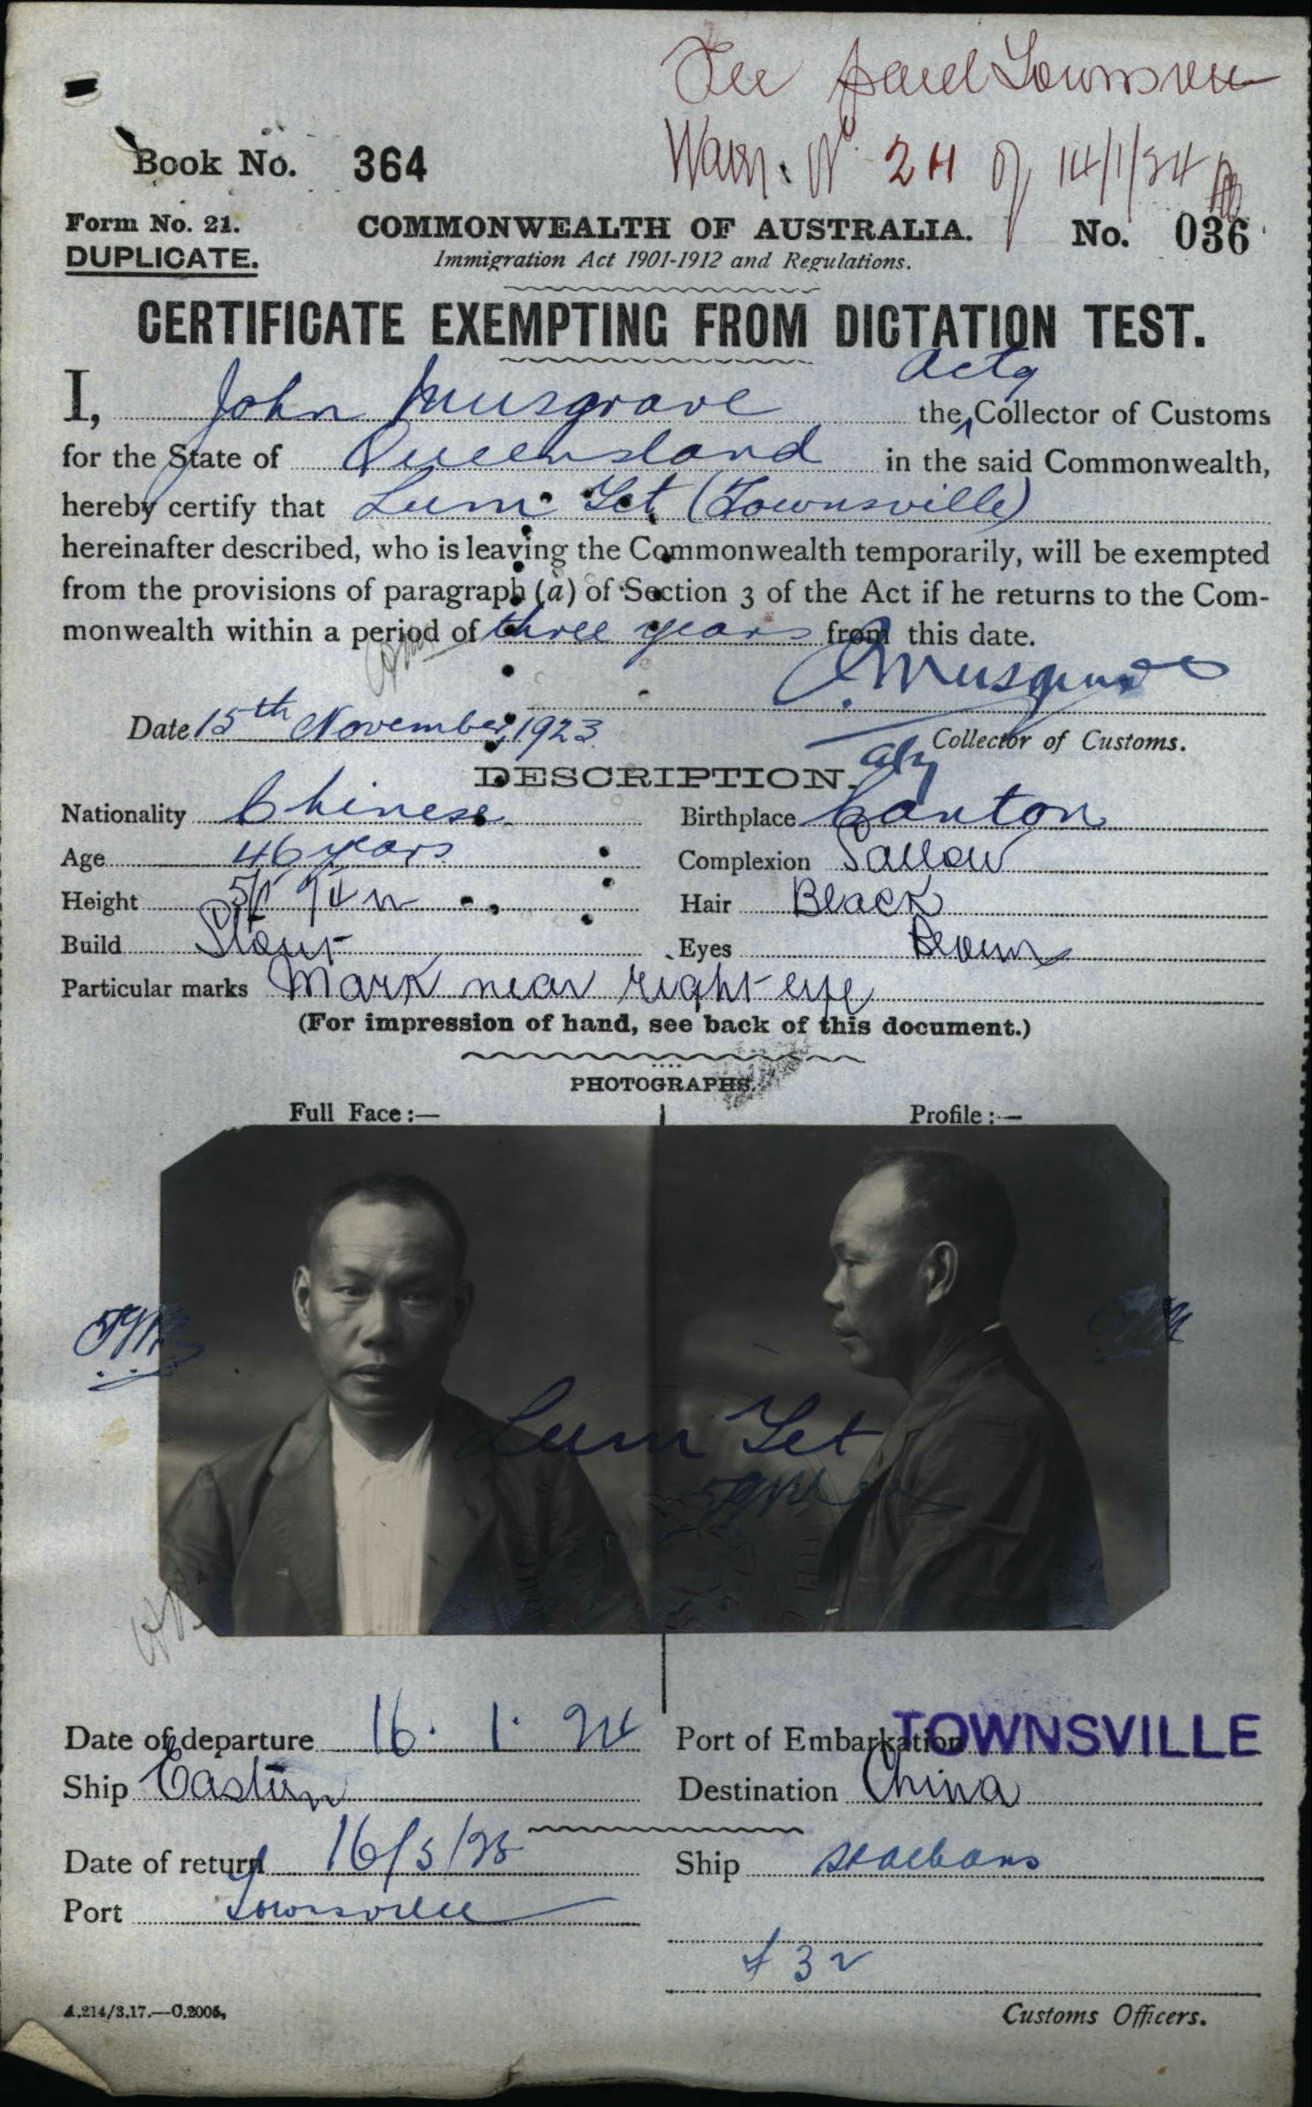 Fee paid Townsville
Warr. No 2H of 14/1/24
Book No. 364
Form No. 21. COMMONWEALTH OF AUSTRALIA. No. 036
DUPLICATE. Immigration Act 1901-1912 and Regulations.
CERTIFICATE EXEMPTING FROM DICTATION TEST.
Actg
I, John Musgrave the Collector of Customs
for the State of Queensland in the said Commonwealth,
hereby certify that Lum Yet (Townsville)
hereinafter described, who is leaving the Commonwealth temporarily, will be exempted
from the provisions of paragraph (a) of Section 3 of the Act if he returns to the Com-
monwealth within a period of three years from this date.
J. Musgrave
Date 15th November, 1923.
Actg Collector of Customs.
DESCRIPTION.
Nationality Chinese Birthplace Canton
Age 46 years Complexion Sallow
Height Hair Black
Build Stout Eyes Brown
Particular marks Mark near right eye
(For impression of hand, see back of this document.)
PHOTOGRAPHS.
Full Face:— Profile:—
Lum Yet
Date of departure 16. 1. 24 Port of Embarkation TOWNSVILLE
Ship Eastern Destination China
Date of return 16/5/25 Ship St Albans
Port Townsville
£32
A.214/3.17.—C.2005. Customs Officers.